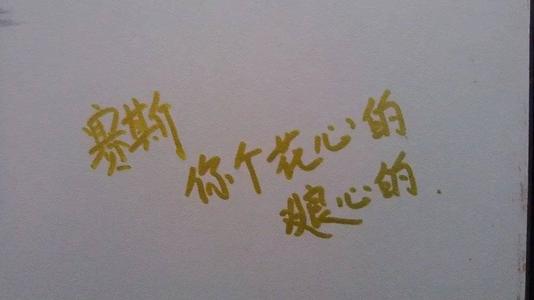 赛斯
你个花心的
没良心的.